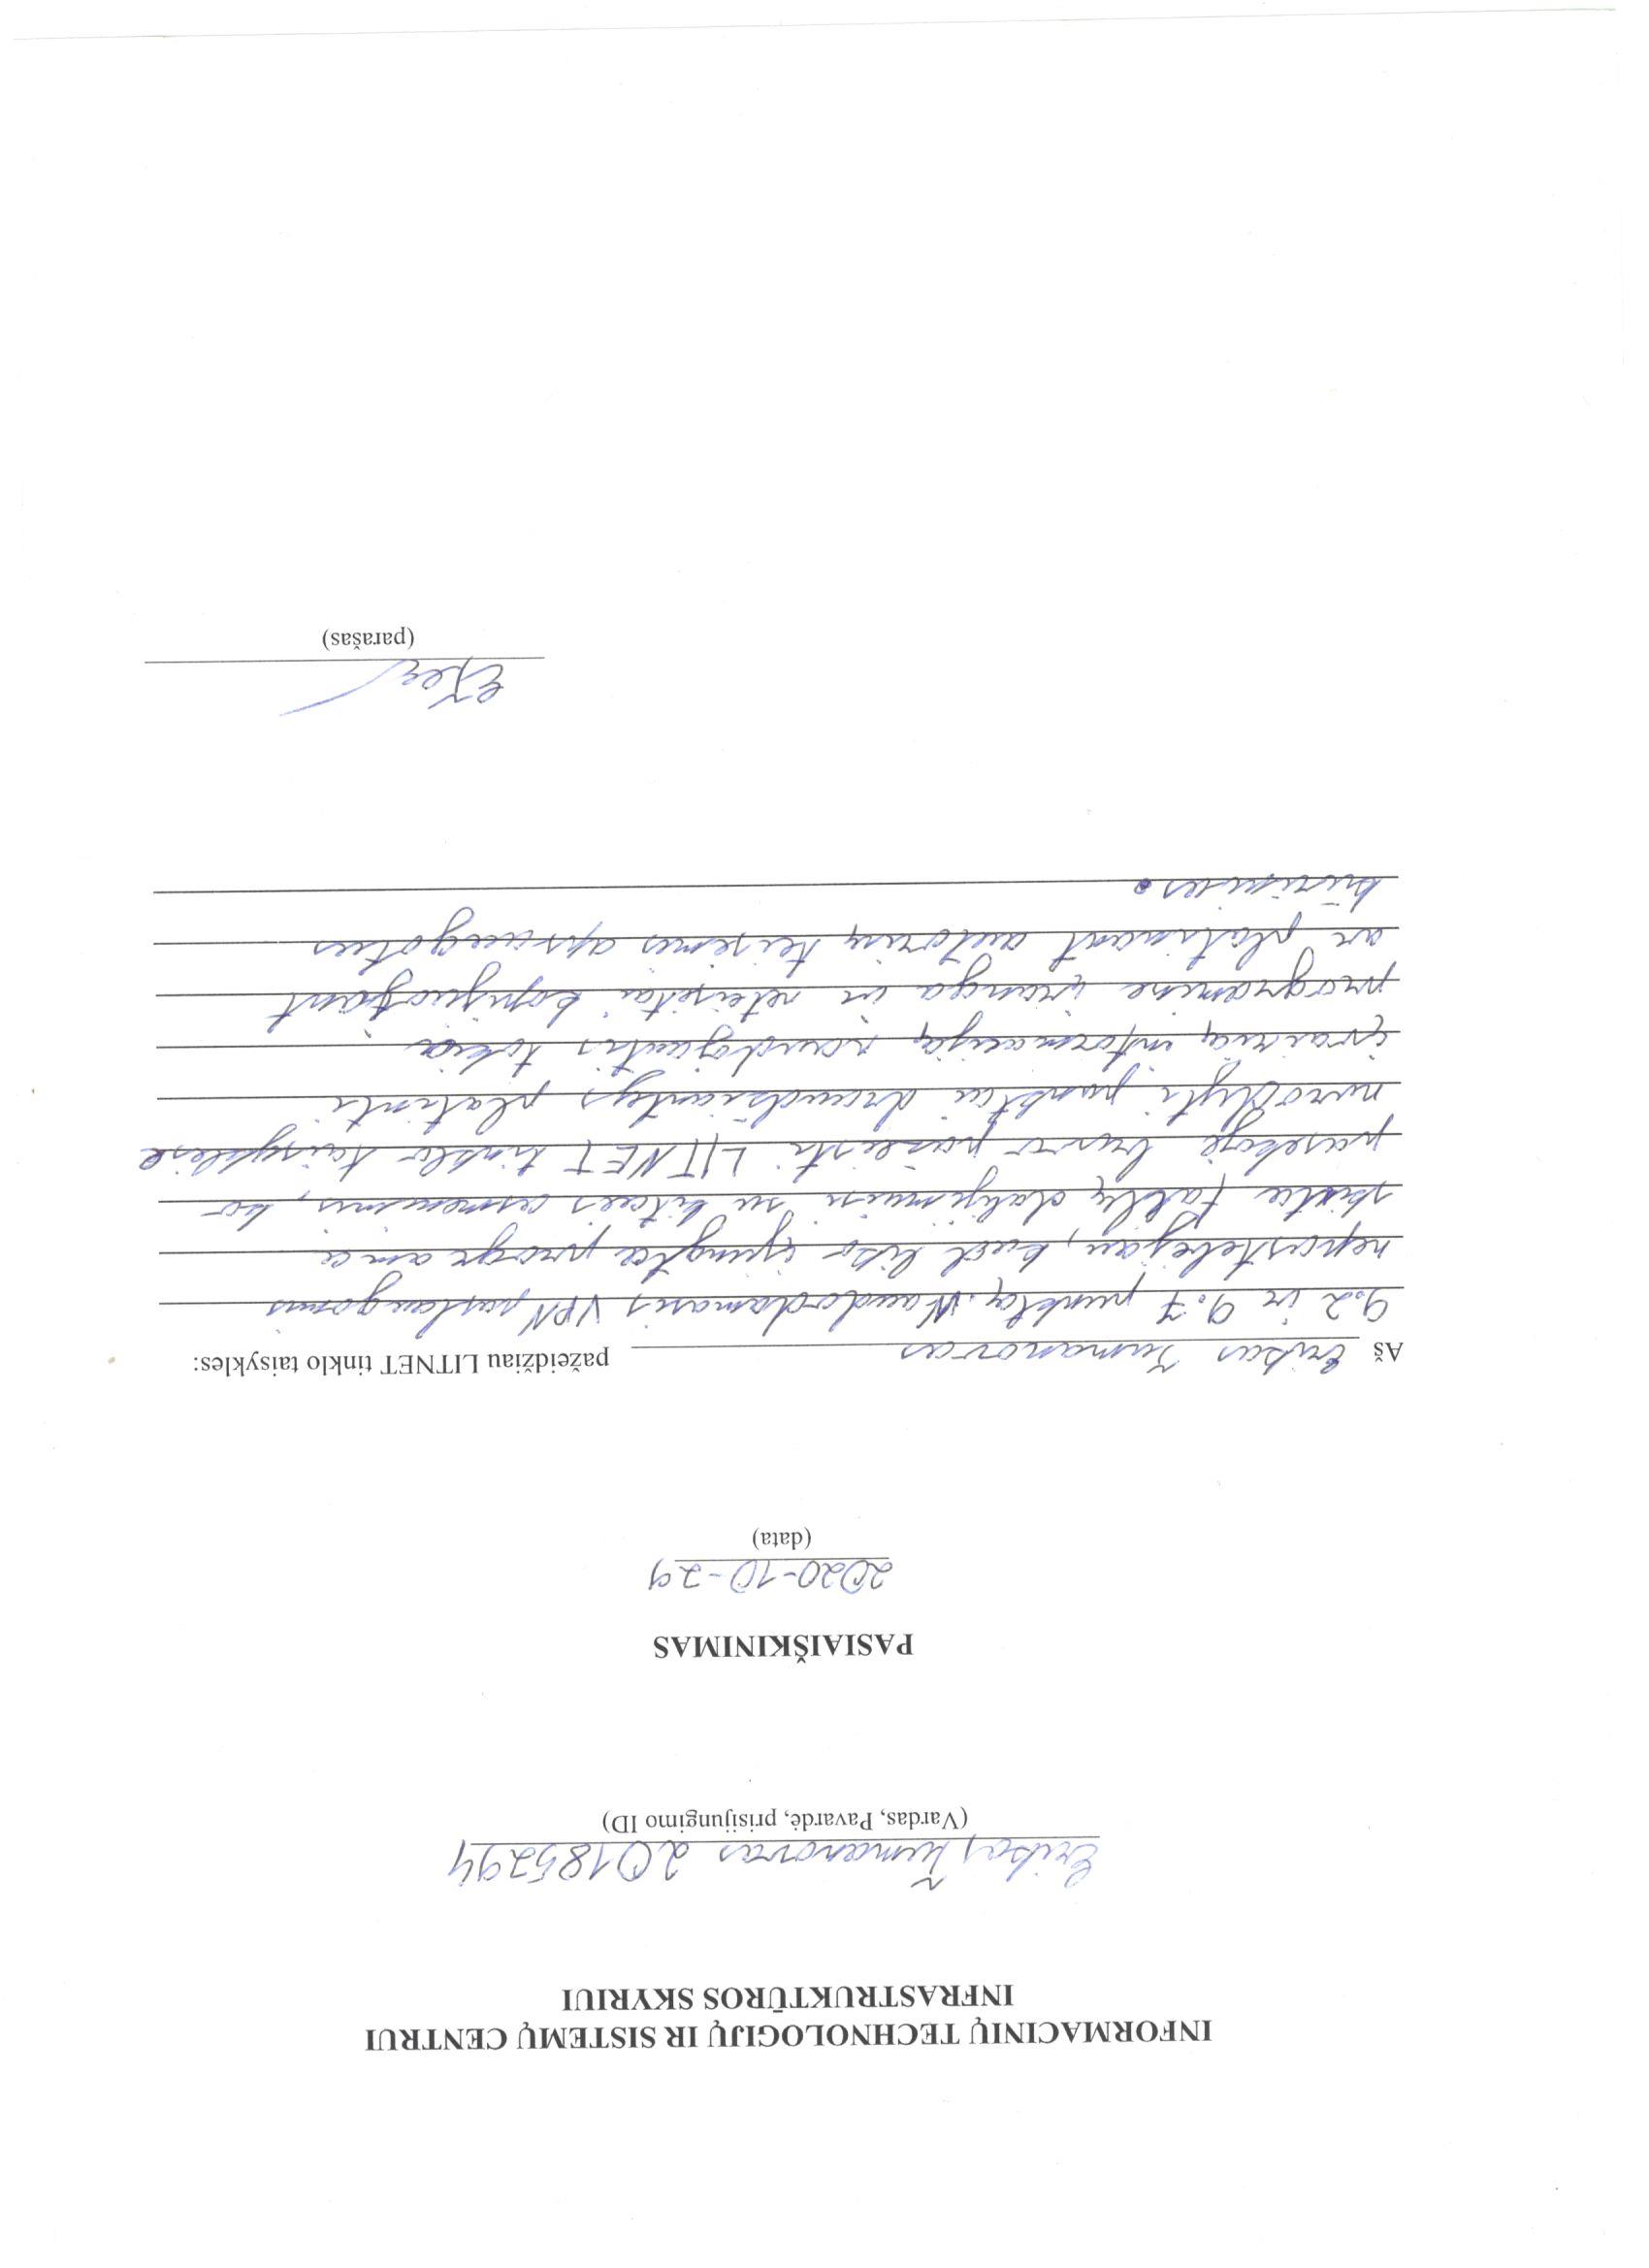 INFORMACINIŲ TECHNOLOGIJŲ IR SISTEMŲ CENTRUI
INFRASTRUKTŪROS SKYRIUI
Erikas Tumanovas 20185294
(Vardas, Pavardė, prisijungimo ID)
PASIAIŠKINIMAS
2020-10-29
(data)
Aš Erikas Tumanovas pažeidžiau LITNET tinklo taisykles:
9.2 ir 9.7 punktą. Naudodamasis VPN paslaugomis
nepastebėjau, kad liko įjungta programa
skirta failų dalijimuisi su kitais asmenimis, ko
pasekoje buvo pažeisti LITNET tinklo taisyklėse
nurodyti punktai draudžiantys platinti
įvairią informaciją naudojantis tokia
programine įranga ir neteisėtai kopijuojant
ar platinant autorių teisėmis apsaugotus
kūrinius.
(parašas)